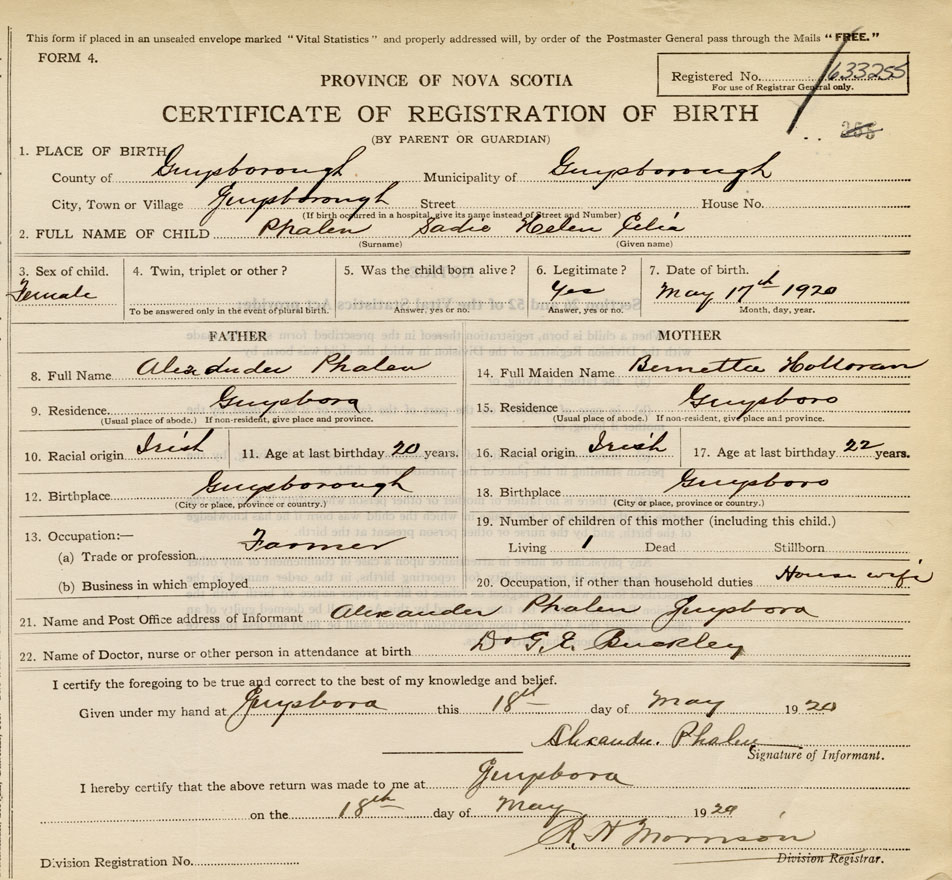 This form if placed in an unsealed envelope marked "Vital Statistics" and properly addressed will, by order of the Postmaster General pass through the Mails "FREE."
FORM 4.
Registered No. 633255
For use of Registrar General only.
PROVINCE OF NOVA SCOTIA
CERTIFICATE OF REGISTRATION OF BIRTH
(BY PARENT OR GUARDIAN)
1. PLACE OF BIRTH
County of Guysborough Municipality of Guysborough
City, Town or Village Guysborough Street House No.
(If birth occurred in a hospital, give its name instead of Street and Number)
2. FULL NAME OF CHILD Phalen Sadie Helen Celia
(Surname) (Given name)
3. Sex of child. 4. Twin, triplet or other? 5. Was the child born alive? 6. Legitimate? 7. Date of birth.
Female Yes May 17th 1920
To be answered only in the event of plural birth. Answer, yes or no. Answer, yes or no. Month, day, year.
FATHER MOTHER
8. Full Name Alexander Phalen 14. Full Maiden Name Bernetta Holloran
9. Residence Guysboro 15. Residence Guysboro
(Usual place of abode.) If non-resident, give place and province. (Usual place of abode.) If non-resident, give place and province.
10. Racial origin Irish 11. Age at last birthday 20 years. 16. Racial origin Irish 17. Age at last birthday 22 years.
12. Birthplace Guysborough 18. Birthplace Guysboro
(City or place, province or country.) (City or place, province or country.)
13. Occupation:— 19. Number of children of this mother (including this child.)
(a) Trade or profession Farmer Living 1 Dead Stillborn
(b) Business in which employed 20. Occupation, if other than household duties House wife
21. Name and Post Office address of Informant Alexander Phalen Guysboro
22. Name of Doctor, nurse or other person in attendance at birth Dr G.E. Buckley
I certify the foregoing to be true and correct to the best of my knowledge and belief.
Given under my hand at Guysboro this 18th day of May 1920
Alexander Phalen
Signature of Informant.
I hereby certify that the above return was made to me at Guysboro
on the 18th day of May 1920
R. H Morrison
Division Registration No. Division Registrar.